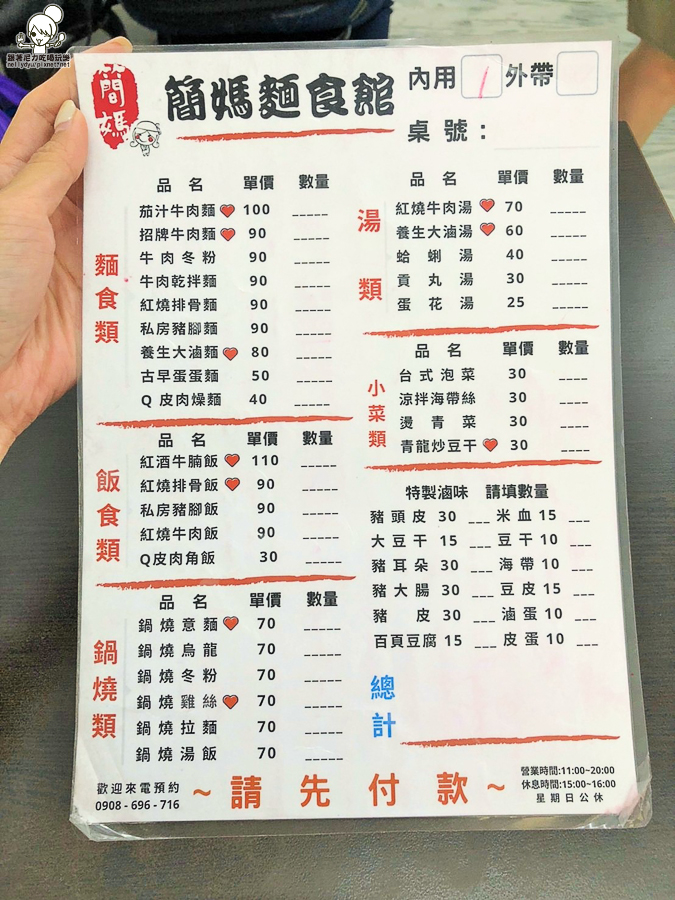 跟著尼力吃喝玩樂
nellydyu/pixnet.net
簡媽
簡媽麵食館
內用 外帶
桌號：
麵食類
品名 單價 數量
茄汁牛肉麵 100 _____
招牌牛肉麵 90 _____
牛肉冬粉 90 _____
牛肉乾拌麵 90 _____
紅燒排骨麵 90 _____
私房豬腳麵 90 _____
養生大滷麵 80 _____
古早蛋蛋麵 50 _____
Q皮肉燥麵 40 _____
飯食類
品名 單價 數量
紅酒牛腩飯 110 _____
紅燒排骨飯 90 _____
私房豬腳飯 90 _____
紅燒牛肉飯 90 _____
Q皮肉角飯 30 _____
鍋燒類
品名 單價 數量
鍋燒意麵 70 _____
鍋燒烏龍 70 _____
鍋燒冬粉 70 _____
鍋燒雞絲 70 _____
鍋燒拉麵 70 _____
鍋燒湯飯 70 _____
湯類
品名 單價 數量
紅燒牛肉湯 70 _____
養生大滷湯 60 _____
蛤蜊湯 40 _____
貢丸湯 30 _____
蛋花湯 25 _____
小菜類
品名 單價 數量
台式泡菜 30 ____
涼拌海帶絲 30 ____
燙青菜 30 ____
青龍炒豆干 30 ____
特製滷味 請填數量
豬頭皮 30 ___ 米血 15 ___
大豆干 15 ___ 豆干 10 ___
豬耳朵 30 ___ 海帶 10 ___
豬大腸 30 ___ 豆皮 15 ___
豬皮 30 ___ 滷蛋 10 ___
百頁豆腐 15 ___ 皮蛋 10 ___
總計
歡迎來電預約
0908-696-716
~請先付款~
營業時間:11:00~20:00
休息時間:15:00~16:00
星期日公休